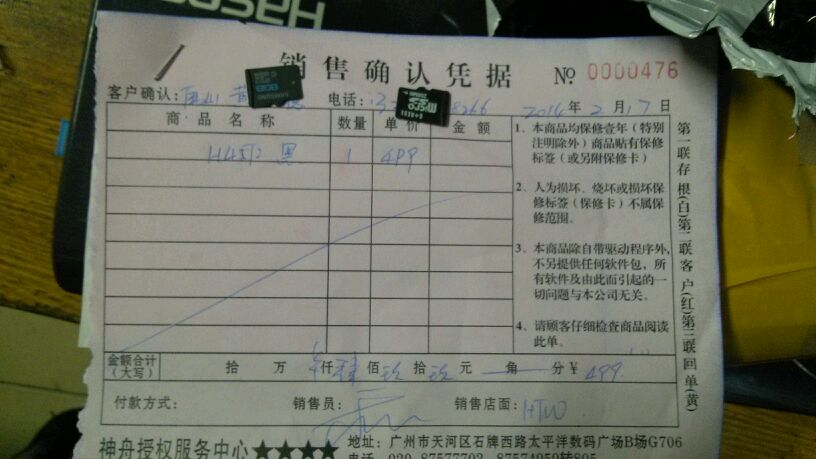 Hasee
销售确认凭据 № 0000476
客户确认: 电话: 8266 2014年2月17日
商品名称 数量 单价 金额
H45T2 黑 1 499
1、本商品均保修壹年（特别
注明除外）商品贴有保修
标签（或另附保修卡）
2、人为损坏、烧坏或损坏保
修标签（保修卡）不属保
修范围。
3、本商品除自带驱动程序外,
不另提供任何软件包，所
有软件及由此而引起的一
切问题与本公司无关。
4、请顾客仔细检查商品阅读
此单。
第一联存根(白)第二联客户(红)第三联回单(黄)
金额合计
(大写) 拾 万 仟 肆 佰 玖 拾 玖 元 角 分 ¥ 499.
付款方式: 销售员: 销售店面: HTW
神舟授权服务中心★★★★ 地址: 广州市天河区石牌西路太平洋数码广场B场G706
电话: 020-87577703 87574959转805
SAMSUNG
8GB
micro